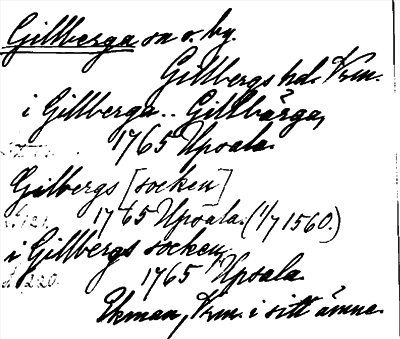 Gillberga sn o. by.
Gillbergs hd. Vrm.
i Gillberga.. Gillbärga,
1765 Upsala.
Gilbergs [socken]
1765 Upsala. (1/7 1560.)
i Gillbergs socken,
1765 Upsala.
Ekman, Vrm. i sitt ämne.